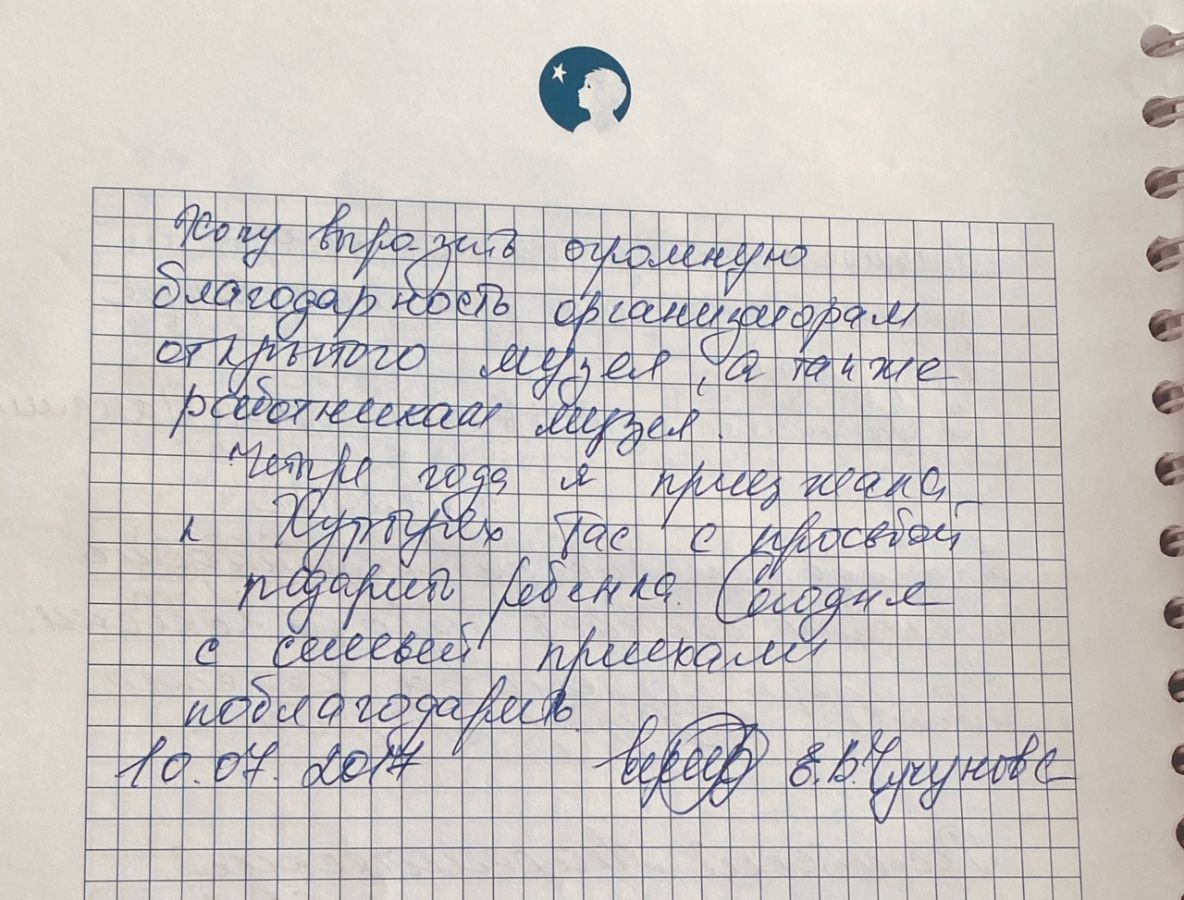 Хочу выразить огромную
благодарность организаторам
открытого музея, а также
работникам музея.
Четыре года я приезжала
к Хуртуях Тас с просьбой
подарить ребенка. Сегодня
с семьей приехали
поблагодарить
10.07.2017 Е.В.Чучунова